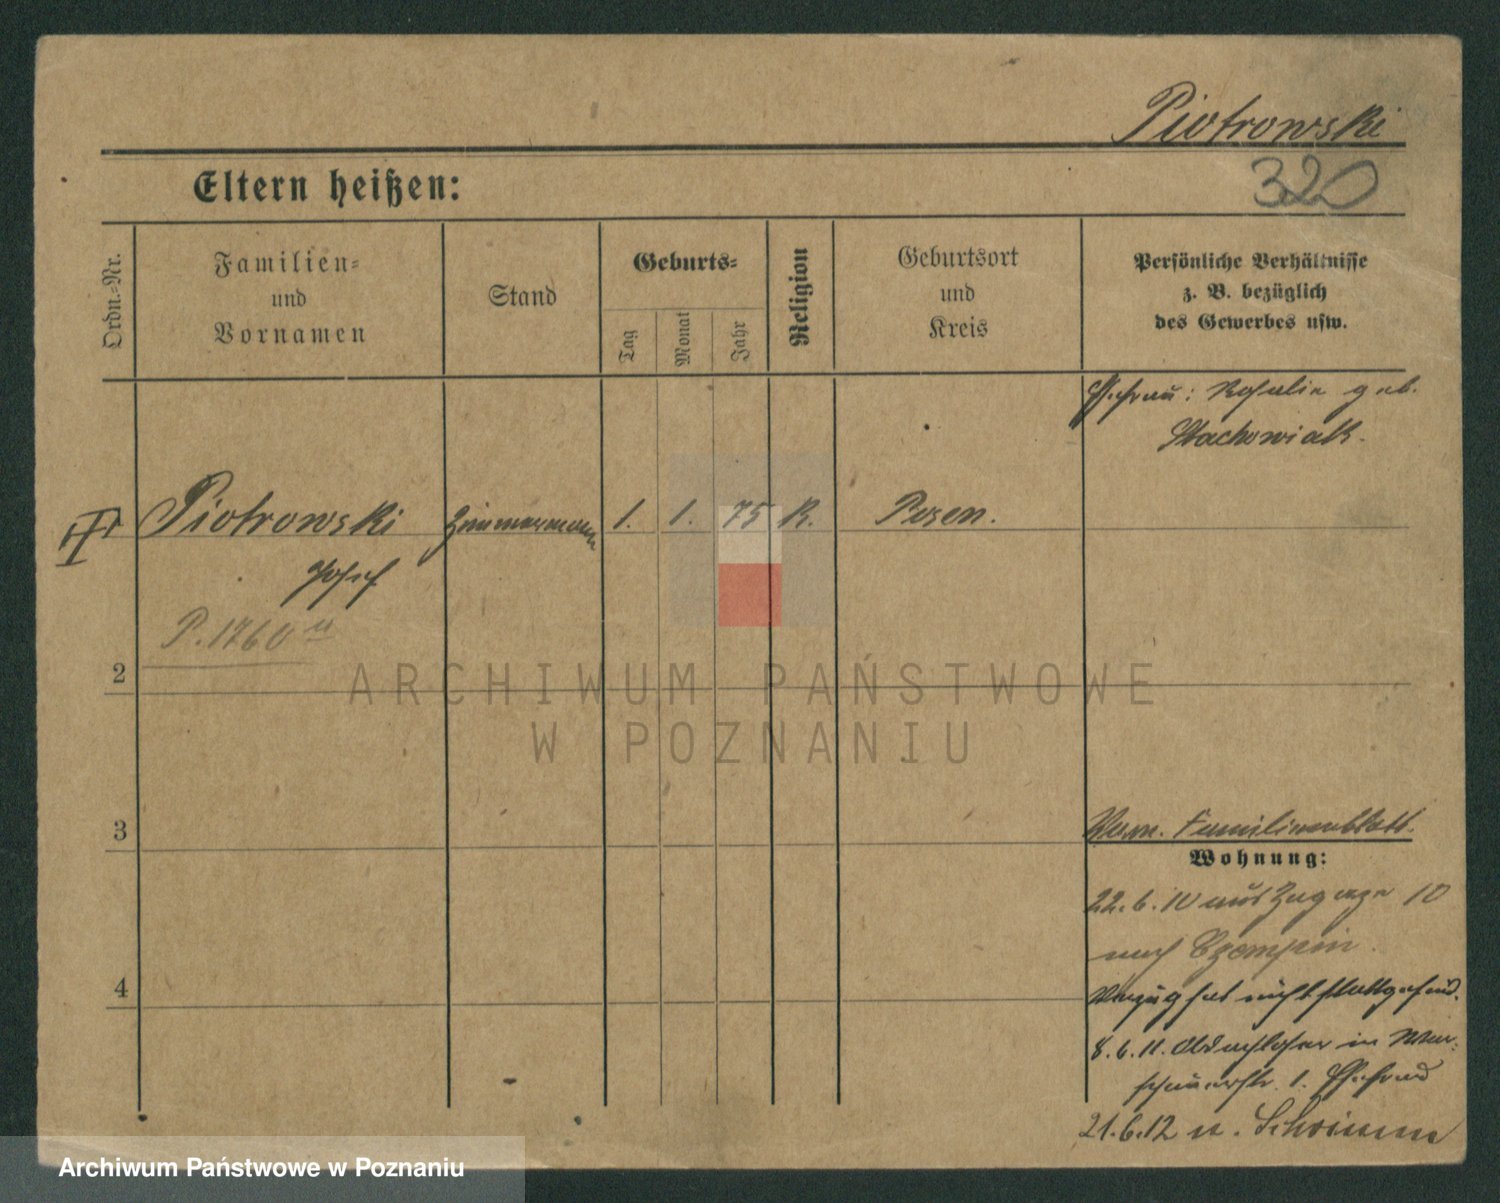 Piotrowski
320
Eltern heißen:
Ordn.-Nr.
Familien- und Vornamen
Stand
Geburts-
Tag
Monat
Jahr
Religion
Geburtsort und Kreis
Persönliche Verhältnisse z. B. bezüglich des Gewerbes usw.
Ehefrau: Rosalie geb.
Stachowiak.
Piotrowski Zimmermann 1. 1. 75 K. Posen.
Josef
P. 1760
2
3
4
Familienblatt.
Wohnung:
22.6.10 aus 10
nach Czempin.
Umzug hat nicht stattgefund.
8.6.11. Obdachloser in War-
schauerstr. 1.
21.6.12 n.
ARCHIWUM PAŃSTWOWE
W POZNANIU
Archiwum Państwowe w Poznaniu